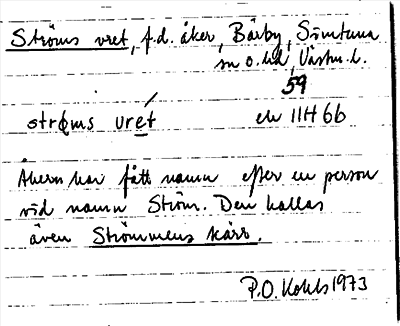 Ströms vret, f.d. åker, Bärby, Simtuna
sn o. hd, Västm. l.
59
strøms vret
ek 11H 6b
Åkern har fått namn efter en person
vid namn Ström. Den kallas
även Strömmens kärr.
P.O. Kohls 1973